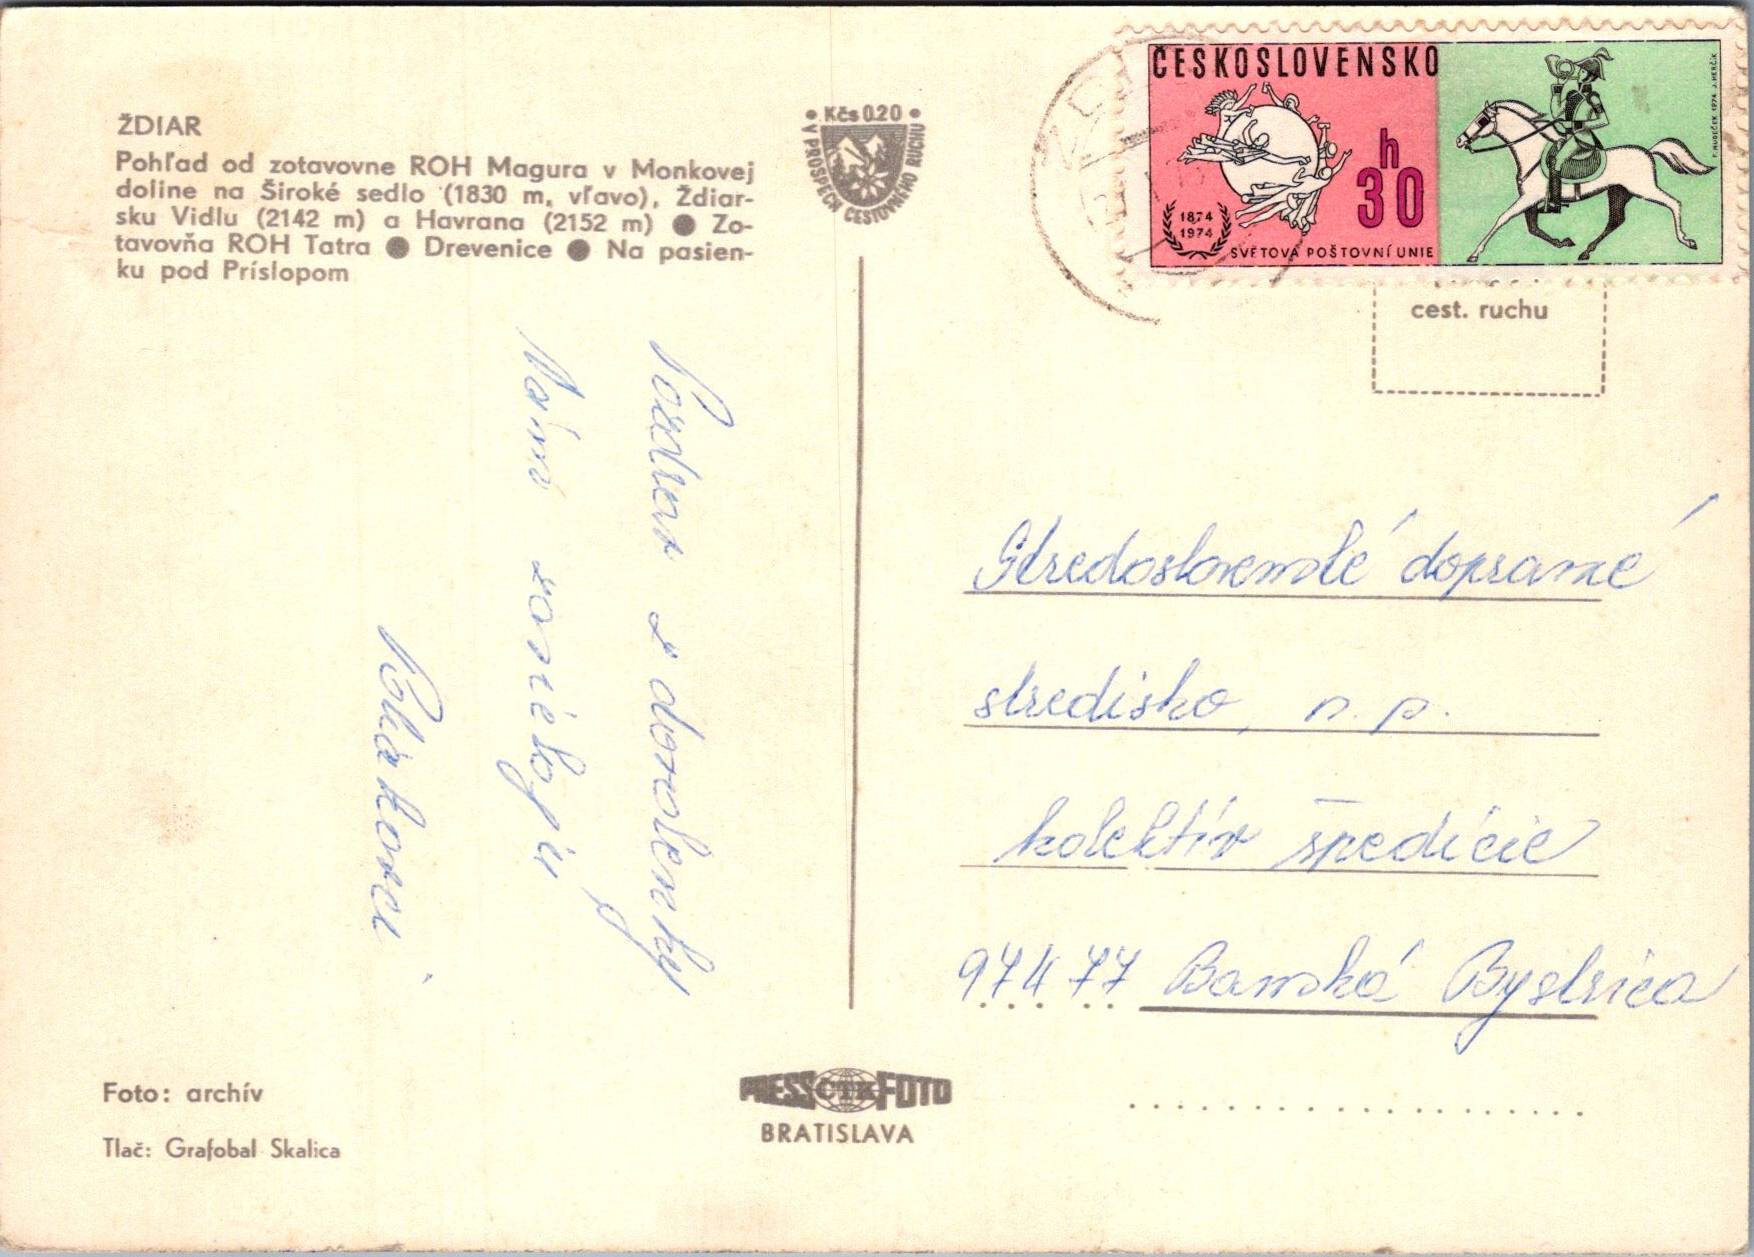 ŽDIAR
Pohľad od zotavovne ROH Magura v Monkovej
doline na Široké sedlo (1830 m, vľavo), Ždiar-
sku Vidlu (2142 m) a Havrana (2152 m) ● Zo-
tavovňa ROH Tatra ● Drevenice ● Na pasien-
ku pod Príslopom
Kčs 0.20
V PROSPECH CESTOVNÉHO RUCHU
ČESKOSLOVENSKO
h
30
1874
1974
SVĚTOVÁ POŠTOVNÍ UNIE
F. HUDEČEK 1974 J. HERČÍK
cest. ruchu
Pozdrav z dovolenky
Vám
Středoslovenské dopravné
stredisko, n. p.
kolektív špedície
974 77 Banská Bystrica
Foto: archív
Tlač: Grafobal Skalica
PRESS ČTK FOTO
BRATISLAVA